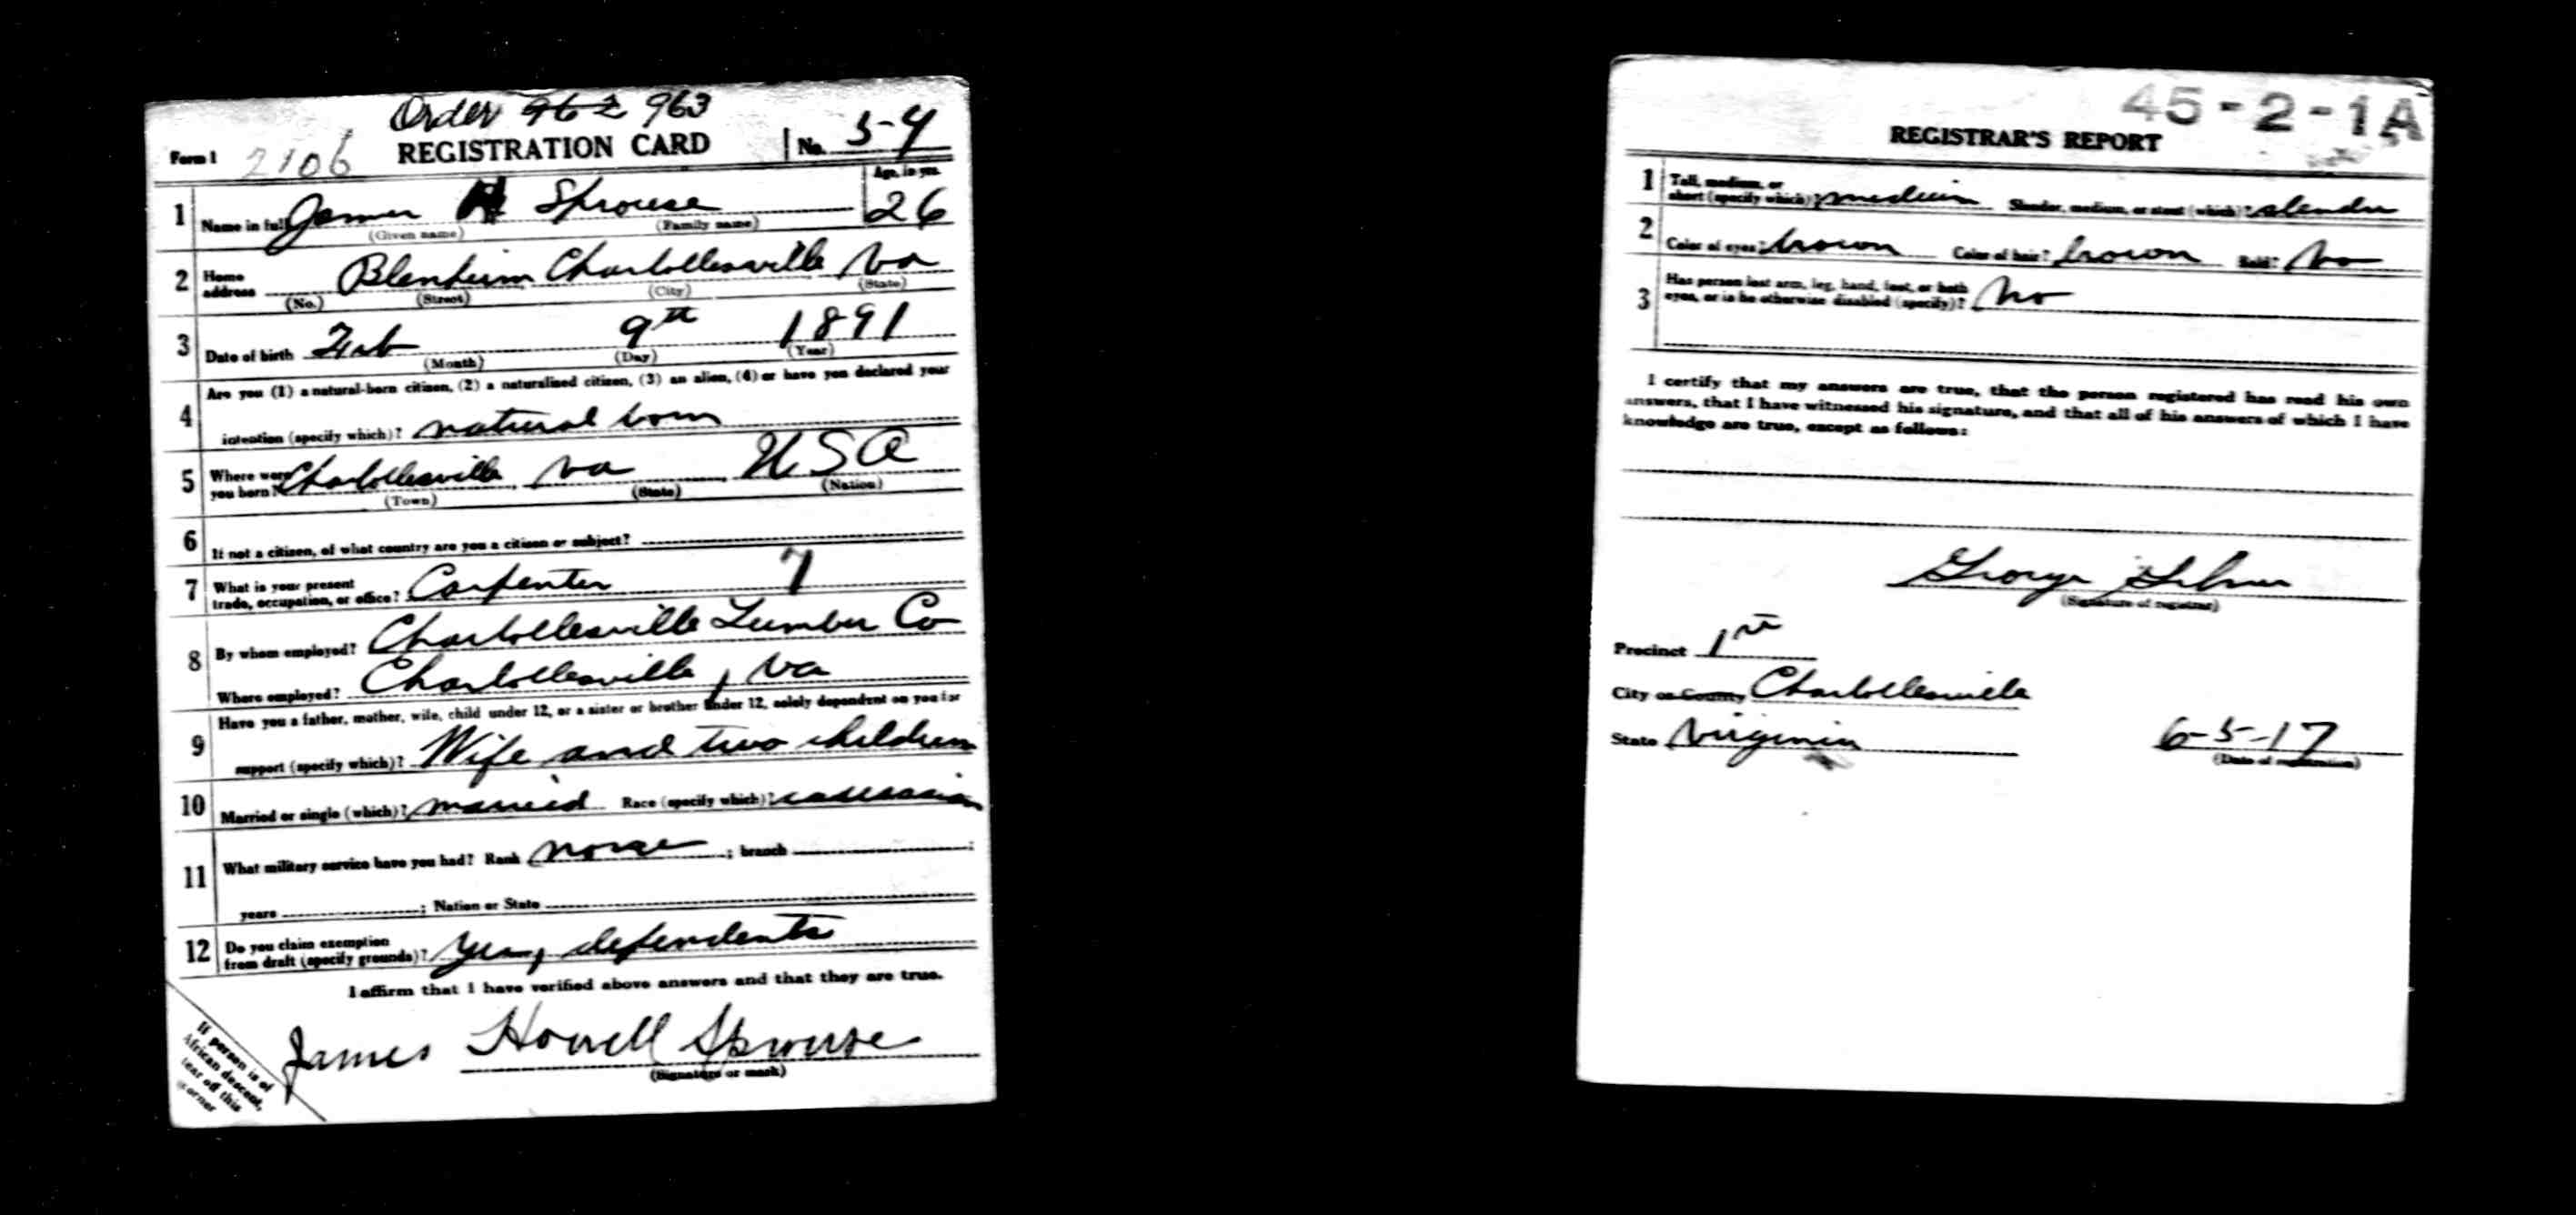 Order 962 963
Form 1 2106 REGISTRATION CARD No. 5-4
1 Name in full James H Sprouse Age, in yrs. 26
(Given name) (Family name)
2 Home address Blenheim Charlottesville Va
(No.) (Street) (City) (State)
3 Date of birth Feb 9th 1891
(Month) (Day) (Year)
4 Are you (1) a natural-born citizen, (2) a naturalized citizen, (3) an alien, (4) or have you declared your
intention (specify which)? natural born
5 Where were you born? Charlottesville, Va, USA
(Town) (State) (Nation)
6 If not a citizen, of what country are you a citizen or subject?
7 What is your present trade, occupation, or office? Carpenter 7
8 By whom employed? Charlottesville Lumber Co
Where employed? Charlottesville, Va
9 Have you a father, mother, wife, child under 12, or a sister or brother under 12, solely dependent on you for
support (specify which)? Wife and two children
10 Married or single (which)? married Race (specify which)? caucasian
11 What military service have you had? Rank none ; branch ;
years ; Nation or State
12 Do you claim exemption from draft (specify grounds)? Yes, dependents
I affirm that I have verified above answers and that they are true.
James Howell Sprouse
(Signature or mark)
If person is of
African descent,
tear off this
corner
45-2-1A
REGISTRAR'S REPORT
1 Tall, medium, or short (specify which)? medium Slender, medium, or stout (which)? slender
2 Color of eyes? brown Color of hair? brown Bald? No
3 Has person lost arm, leg, hand, foot, or both
eyes, or is he otherwise disabled (specify)? No
I certify that my answers are true, that the person registered has read his own
answers, that I have witnessed his signature, and that all of his answers of which I have
knowledge are true, except as follows:
George
(Signature of registrar)
Precinct 1st
City or County Charlottesville
State Virginia 6-5-17
(Date of registration)